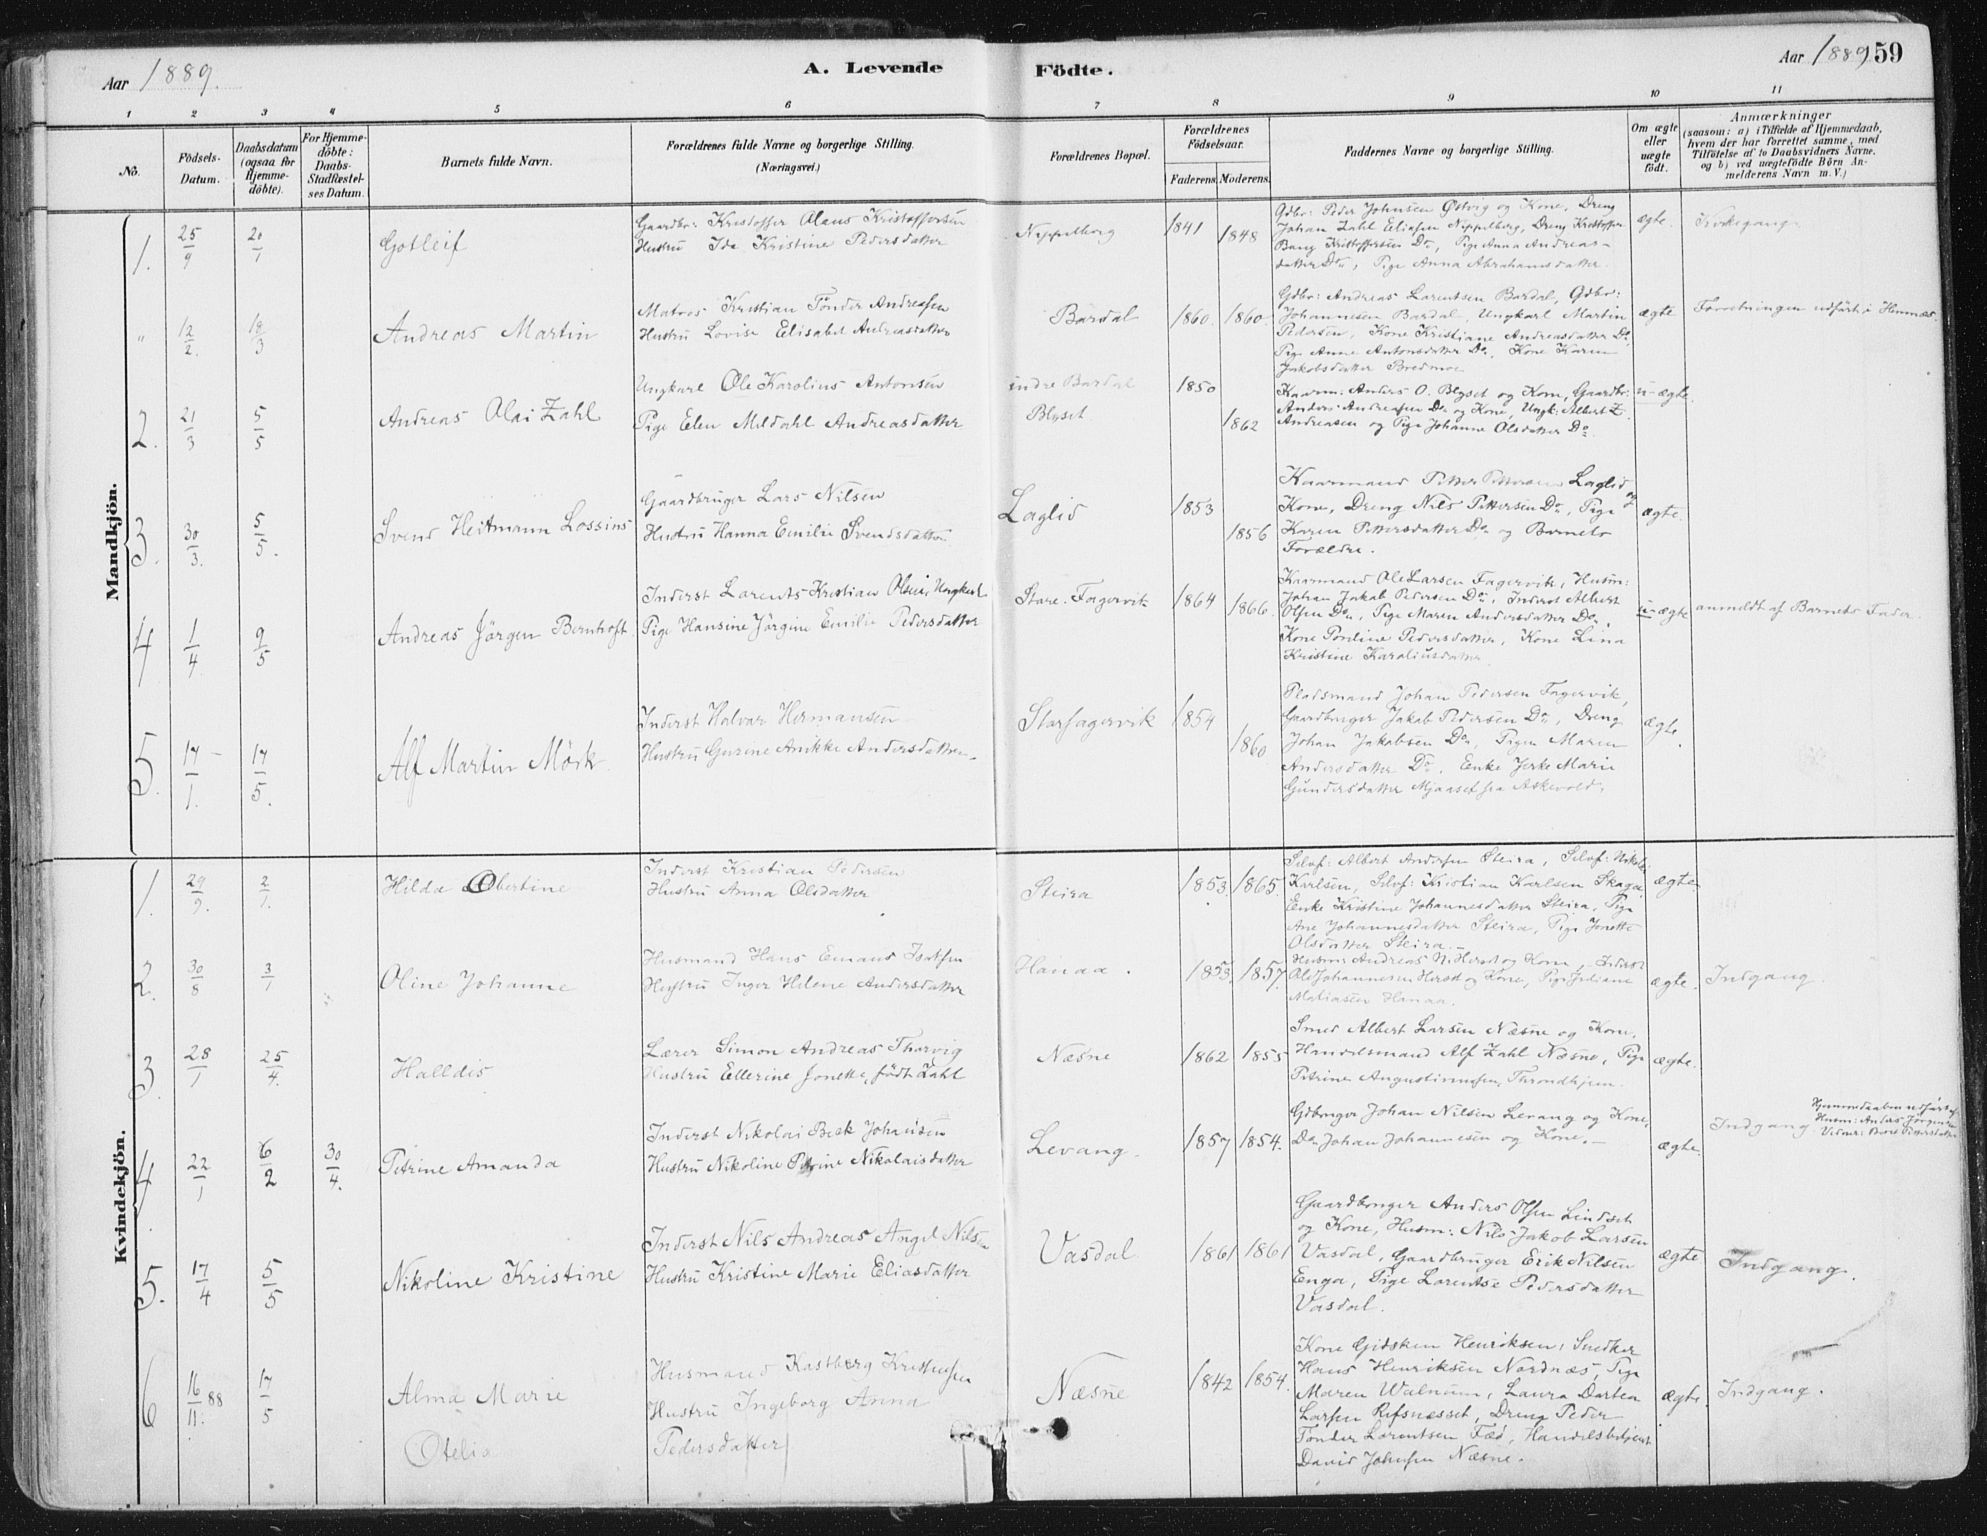 Aar 1889.
A. Levende
Födte.
Aar 1889
59
1 2 3 4 5 6 7 8 9 10 11
No.
Födsels-
Datum.
Daabsdatum
(ogsaa for
Hjemme-
döbte).
For Hjemme-
döbte:
Daabs-
Stadfæstel-
ses Datum.
Barnets fulde Navn.
Forældrenes fulde Navne og borgerlige Stilling.
(Næringsvei.)
Forældrenes Bopæl.
Forældrenes
Födselsaar.
Faderens. Moderens.
Faddernes Navne og borgerlige Stilling.
Om ægte
eller
uægte
födt.
Anmærkninger
(saasom: a) i Tilfælde af Hjemmedaab,
hvem der har forrettet samme, med
Tilföielse af to Daabsvidners Navne.
og b) ved uægtefödte Börn An-
melderens Navn m. V.)
Mandkjön.
1.
25/9
20/1
Gotleif
Gaardbr: Kristoffer Olaus Kristoffersen
Hustru Ida Kristine Pedersdatter
Nippelberg
1841
1848
Gdbr: Peder Johnsen Østvig og Kone, Dreng
Johan Zahl Eliasen Nippelberg, Dreng Kristoffer
Bang Kristoffersen Do, Pige Anna Andreas-
datter Do, Pige Anna Abrahamsdatter.
ægte.
Kirkegang.
"
12/2.
18/3
Andreas Martin
Matros Kristian Tönder Andreasen
Hustru Lovise Elisabet Andreasdatter
Bardal
1860.
1860.
Gdbr: Andreas Larentsen Bardal, Gdbr:
Johannesen Bardal, Ungkarl Martin
Pedersen, Kone Kristiane Andreasdatter Do,
Pige Anne Antonsdatter Do. Kone Karen
Jakobsdatter Bredmoe
ægte
Forretningen udfört i Hemnæs.
2.
21/3
5/5
Andreas Olai Zahl
Ungkarl Ole Karolius Antonsen
Pige Elen Mildahl Andreasdatter
indre Bardal
Blyset
1850
1862
Kaarm: Anders O. Blyset og Kone, Gaardbr:
Anders Andreasen Do og Kone, Ungk: Albert Z.
Andreasen og Pige Johanne Olsdatter Do.
u-ægte.
3.
30/3.
5/5.
Svend Heitmann Lossius
Gaardbruger Lars Nilsen
Hustru Hanna Emilie Svendsdatter
Laglid
1853
1856
Kaarmand Petter Pettersen Laglid og
Kone, Dreng Nils Pettersen Do, Pige
Karen Pettersdatter Do og Barnets
Forældre.
ægte.
4
1/4.
9/5
Andreas Jörgen Bernhoft.
Inderst Lorents Kristian Olsen, Ungkarl
Pige Hansine Jörgine Emilie Pedersdatter
Store. Fagervik
1864
1866.
Kaarmand Ole Larsen Fagervik, Husm:
Johan Jakob Pedersen Do, Inderst Albert
Olsen Do, Pige Maren Andersdatter Do,
Kone Pauline Pedersdatter, Kone Lina
Kristine Karoliusdatter.
u-ægte
anmeldt af Barnets Fader.
5.
17/1.
17/5.
Alf Martin Mörk
Inderst Halvar Hermansen
Hustru Gurine Anikke Andersdatter.
Storfagervik
1854
1860
Pladsmand Johan Pedersen Fagervik,
Gaardbruger Jakob Pedersen Do, Dreng
Johan Jakobsen Do, Pigen Maren
Andersdatter Do, Enke Jerke Marie
Gundersdatter Mjaaset fra Askevold.
ægte.
Kvindekjön.
1.
29/9.
2/1.
Hilda Obertine
Inderst Kristian Pedersen
Hustru Anna Olsdatter
Steira
1853.
1865.
Selvf: Albert Andersen Steira, Selvf: Nikolai
Karlsen, Selvf: Kristian Karlsen Skaga
Enke Kristine Johannesdatter Steira, Pige
Ane Johannesdatter Steira, Pige Jonette
Olsdatter Steira.-
ægte
2.
30/8
3/1
Oline Johanne
Husmand Hans Emaus Isaksen
Hustru Inger Helene Andersdatter
Hanaa.
1853.
1857.
Husm: Andreas N. Hersd og Kone, Inderst
Ole Johannesen Hersd og Kone, Pige Juliane
Matiasen Hanaa.
ægte.
Indgang.
3.
28/1
25/4.
Halldis
Lærer Simon Andreas Thorvig
Hustru Ellerine Jonette, född Zahl
Næsne
1862
1855
Smed Albert Larsen Næsne og Kone,
Handelsmand Alf Zahl Næsne, Pige
Petrine Augustinussen, Throndhjem.
ægte.
4.
22/1
6/2
30/4.
Petrine Amanda
Inderst Nikolai Beck Johansen
Hustru Nikoline Petrine Nikolaisdatter
Levang.
1857
1854.
Gdbruger Johan Nilsen Levang og Kone,
Do Johan Johannesen og Kone.-
ægte.
Indgang
Hjemmedaaben udfört af
Husm: Anders Jörgensen
5.
17/4
5/5
Nikoline Kristine
Inderst Nils Andreas Angel Nilsen
Hustru Kristine Marie Eliasdatter
Vasdal
1861
1861
Gaardbruger Anders Olsen Lindset
og Kone, Husm: Nils Jakob Larsen
Vasdal, Gaardbruger Erik Nilsen
Enga, Pige Lorentse Pedersdatter
Vasdal.
ægte
Indgang.
6
16/11. 88
17/5
Alma Marie
Otelia
Husmand Kastberg Kristensen
Hustru Ingeborg Anna
Pedersdatter
Næsne
1842
1854.
Kone Gidsken Henriksen, Snedker
Hans Henriksen Nordnæs, Pige
Maren Walnum, Laura Dortea
Larsen Refsnesset, Dreng Peder
Tönder Lorentsen Fæö, Handelsbetjent
David Johnsen Næsne.
ægte.
Indgang.